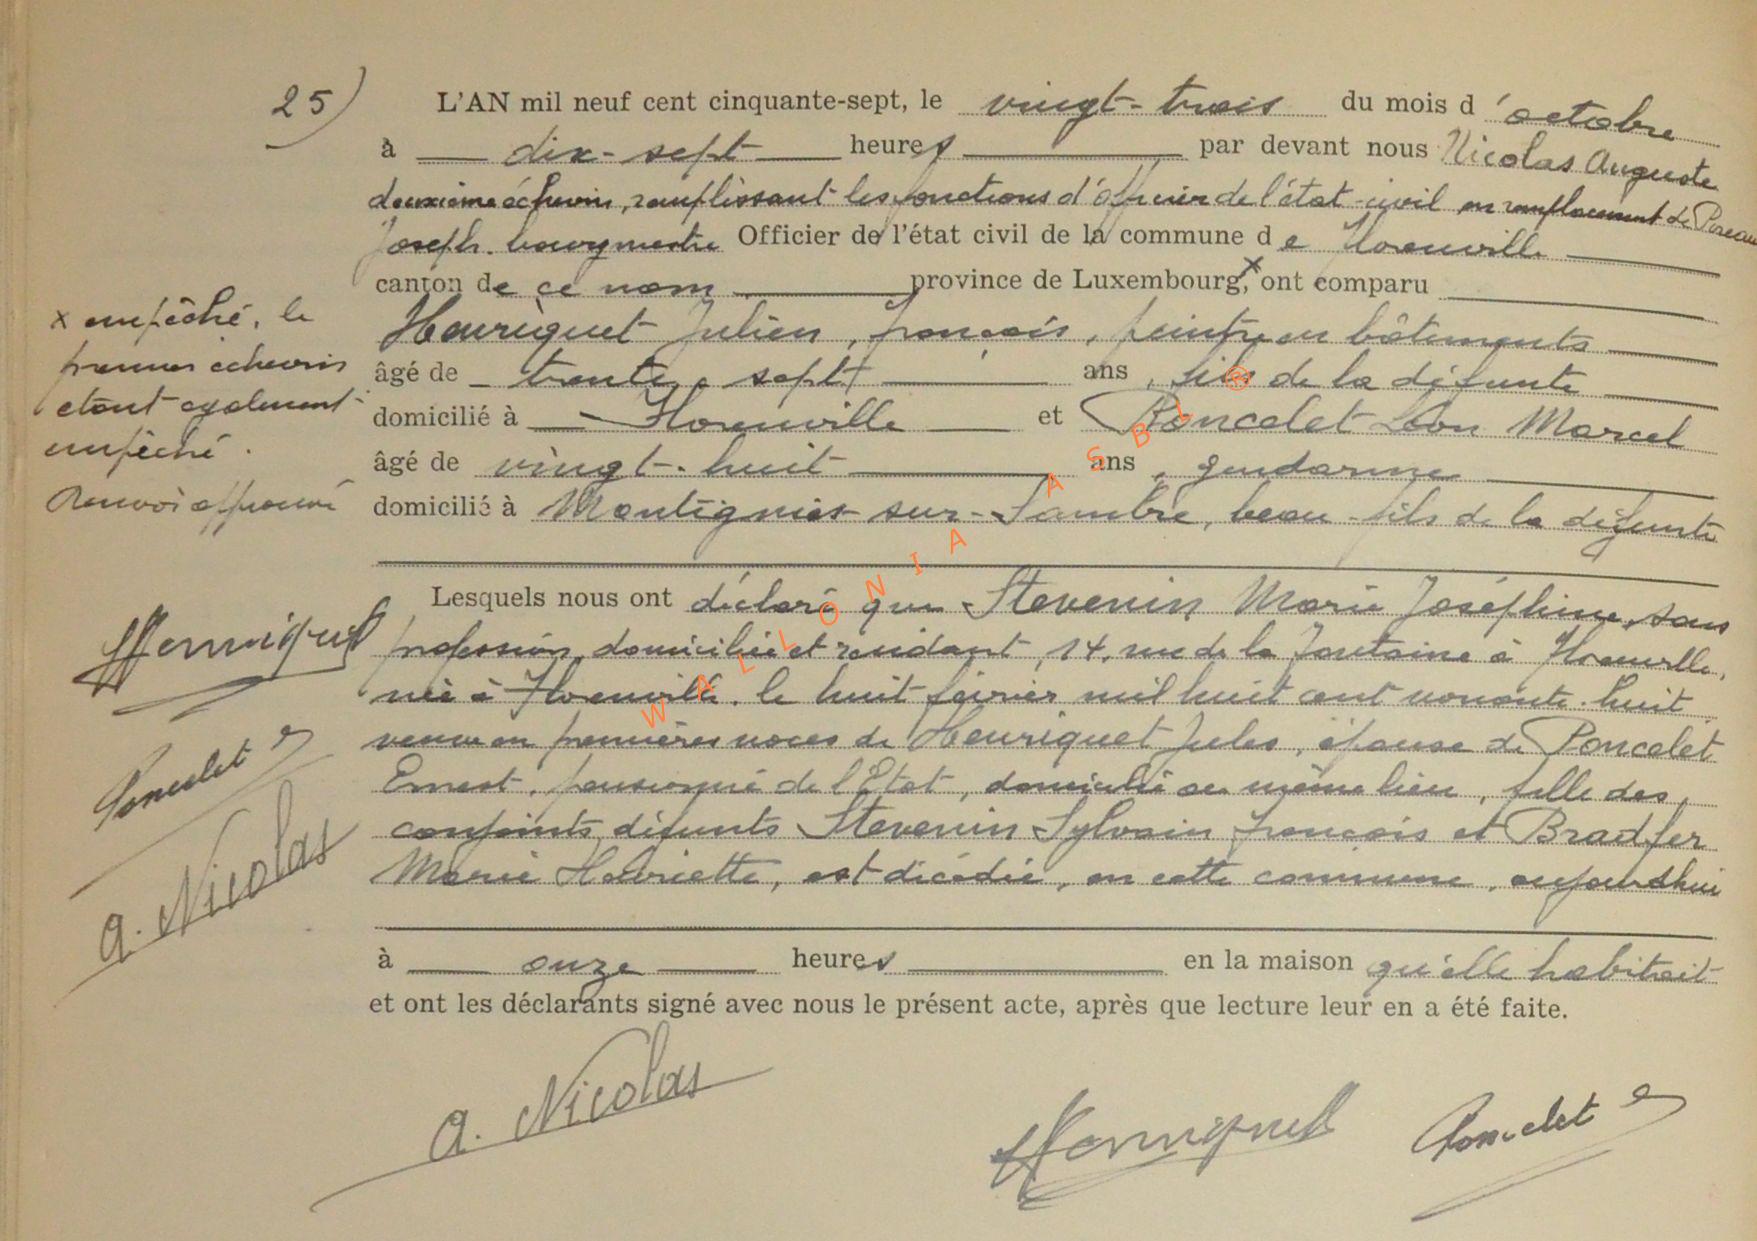 25)
L'AN mil neuf cent cinquante-sept, le vingt-trois du mois d'octobre
à dix-sept heures par devant nous Nicolas Auguste
deuxième échevin, remplissant les fonctions d'officier de l'état-civil en remplacement de
Joseph. bourgmestre Officier de l'état civil de la commune de Florenville
canton de ce nom province de Luxembourg,x ont comparu
x empêché, le
premier échevin
étant également
empêché.
Renvoi approuvé
Henriquet Julien, françois, peintre en bâtiments
âgé de trente-sept ans, fils de la défunte
domicilié à Florenville et Poncelet Léon Marcel
âgé de vingt-huit ans, gendarme
domicilié à Montignies-sur-Sambre, beau-fils de la défunte
Lesquels nous ont déclaré que Stevenin Marie Joséphine, sans
profession, domiciliée et résidant, 14, rue de la Fontaine à Florenville,
née à Florenville. le huit février mil huit cent nonante-huit
veuve en premières noces de Henriquet Jules, épouse de Poncelet
Ernest, pensionné de l'Etat, domicilié au même lieu, fille des
conjoints défunts Stevenin Sylvain françois et Bradfer
Marie Henriette, est décédée, en cette commune, aujourd'hui
à onze heures en la maison qu'elle habitait
et ont les déclarants signé avec nous le présent acte, après que lecture leur en a été faite.
Henriquet
Poncelet
A. Nicolas
A. Nicolas Henriquet Poncelet
WALLONIA ASBL ®